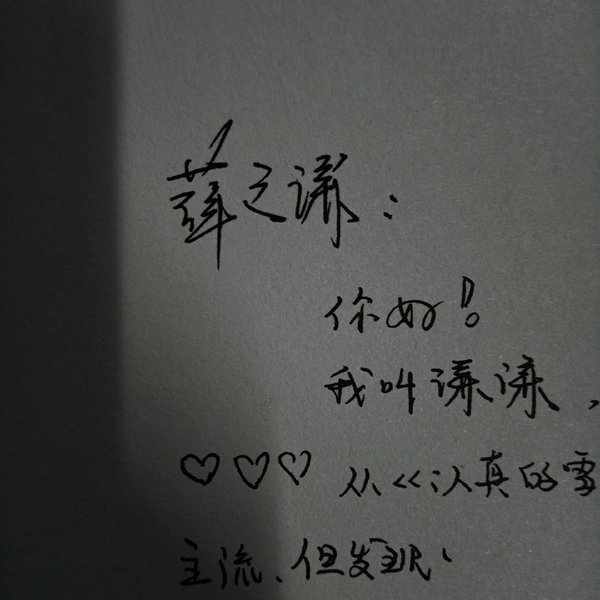 薛之谦：
你好！
我叫谦谦，
♡♡♡从《认真的雪
主流、但发现